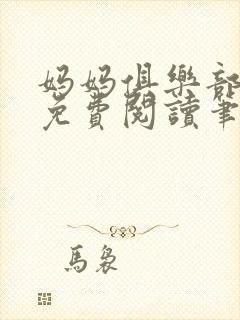 妈妈俱樂部
免費閱讀筆
馬裊